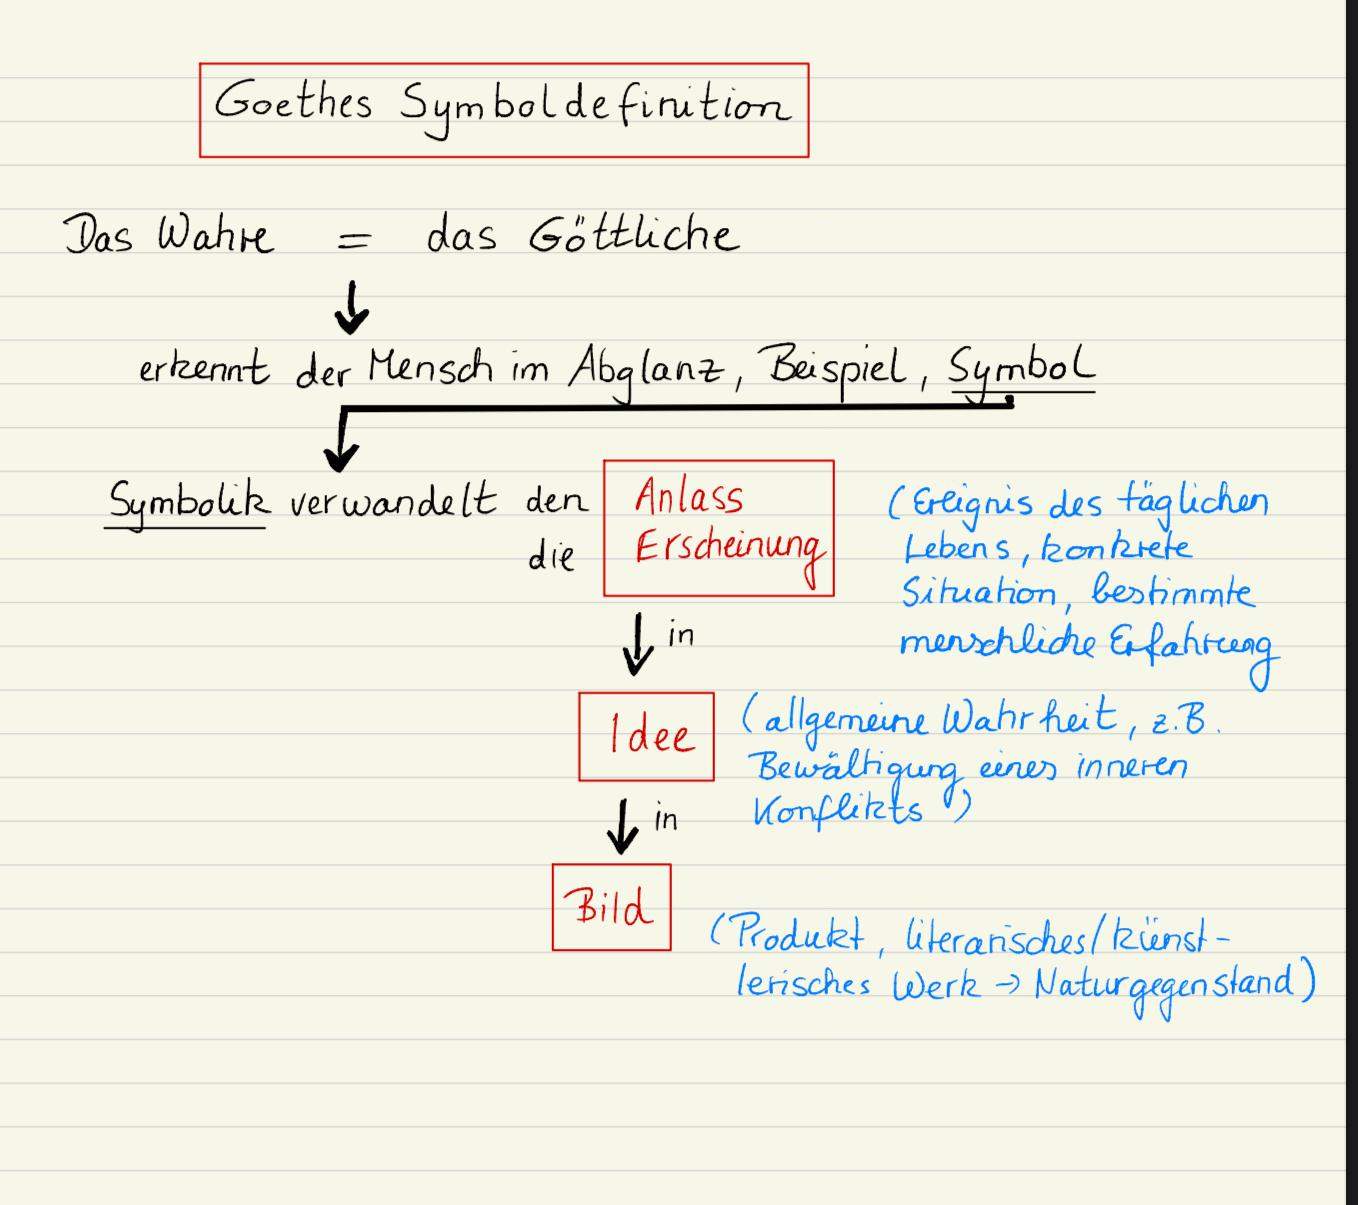 Goethes Symboldefinition
Das Wahre = das Göttliche
↓
erkennt der Mensch im Abglanz, Beispiel, Symbol
Symbolik verwandelt den Anlass
die Erscheinung
(Ereignis des täglichen
Lebens, konkrete
Situation, bestimmte
menschliche Erfahrung
↓ in
Idee
(allgemeine Wahrheit, z.B.
Bewältigung eines inneren
Konflikts)
↓ in
Bild
(Produkt, literarisches/künst-
lerisches Werk → Naturgegenstand)